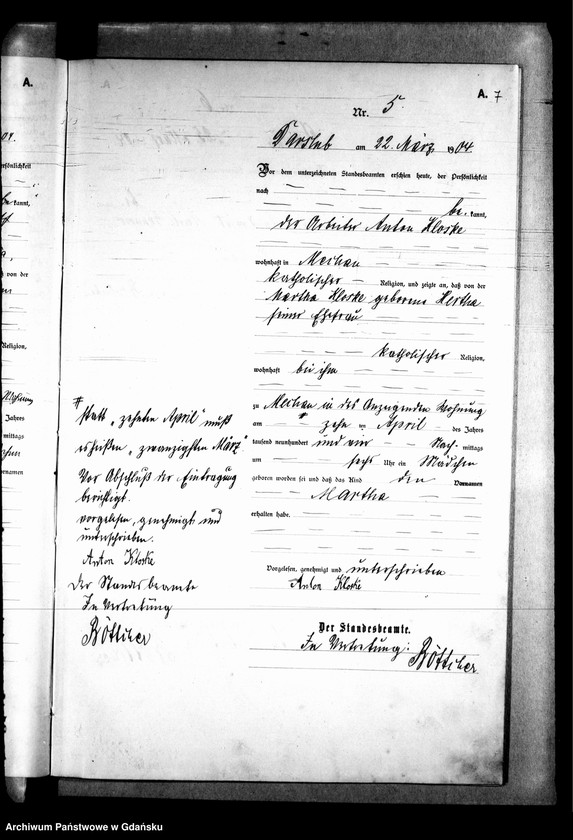 A.
A. 7
Nr. 5
Darslub am 22. März 1904
Vor dem unterzeichneten Standesbeamten erschien heute, der Persönlichkeit
nach
be kannt,
der Arbeiter Anton Kloske
wohnhaft in Mechau
katholischer Religion, und zeigte an, daß von der
Martha Kloske geborene Hertha
seiner Ehefrau
katholischer Religion,
wohnhaft bei ihm
zu Mechau in des Anzeigenden Wohnung
am zehn ten April des Jahres
tausend neunhundert und vier Nach mittags
um sechs Uhr ein Mädchen
geboren worden sei und daß das Kind den Vornamen
Martha
erhalten habe.
Vorgelesen, genehmigt und unterschrieben
Anton Kloske
Der Standesbeamte.
In Vertretung:
Böttcher
statt „zehnten April" muß
es heißen „zwanzigsten März".
Vor Abschluß der Eintragung
berichtigt.
vorgelesen, genehmigt und
unterschrieben.
Anton Kloske
Der Standesbeamte
In Vertretung
Böttcher
04.
kannt,
von der
Religion,
Jahres
mittags
Archiwum Państwowe w Gdańsku